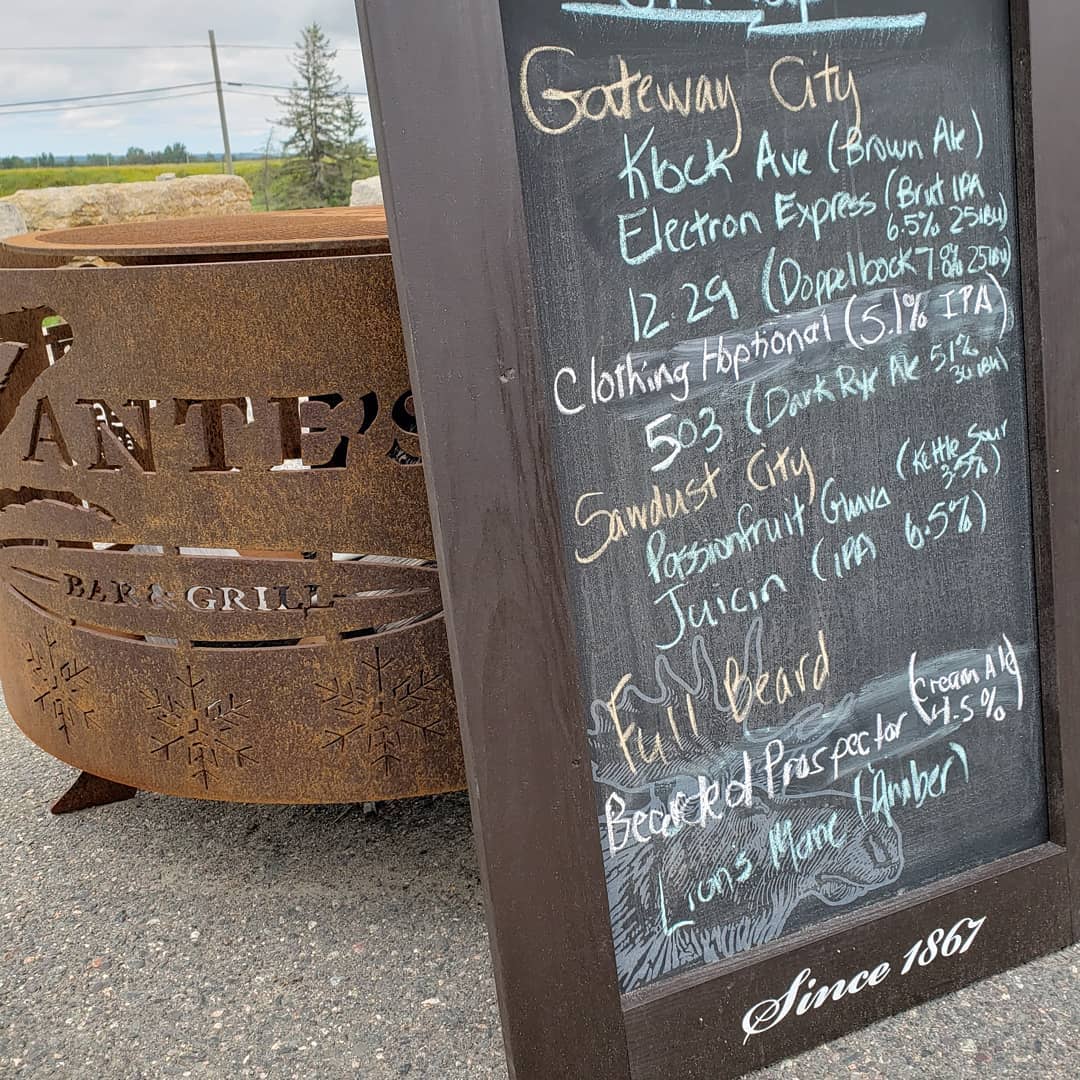 Gateway City
Klock Ave (Brown Ale)
Electron Express (Brut IPA
6.5% 25IBU)
12.29 (Doppelbock 7.8% 25IBU)
Clothing Hoptional (5.1% IPA)
503 (Dark Rye Ale 5.1%
30 IBU)
Sawdust City
Passionfruit Guava (Kettle Sour
3.5%)
Juicin (IPA 6.5%)
Full Beard
Bearded Prospector (Cream Ale
4.5%)
Lion's Mane (Amber)
Since 1867
ANTE'S
BAR & GRILL